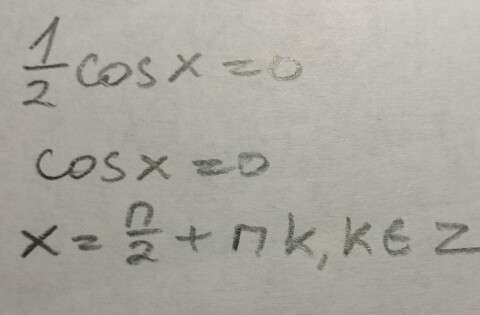 1/2 cos x = 0
cos x = 0
x = π/2 + πk, k ∈ Z